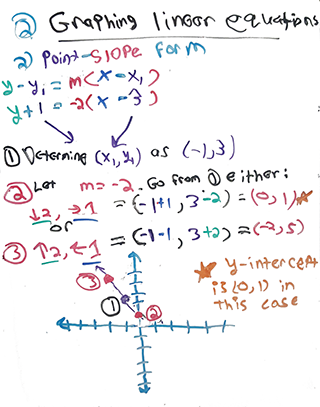 ② Graphing linear equations
2) Point-Slope form
y-y₁=m(x-x₁)
y+1=-2(x-3)
① Determine (x₁,y₁) as (-1,3)
② Let m=-2. Go from ① either:
↓2, →1 = (-1+1, 3-2) = (0,1)★
or
③ ↑2, ←1 = (-1-1, 3+2) = (-2,5)
★ y-intercept
is (0,1) in
this case
③
①
②